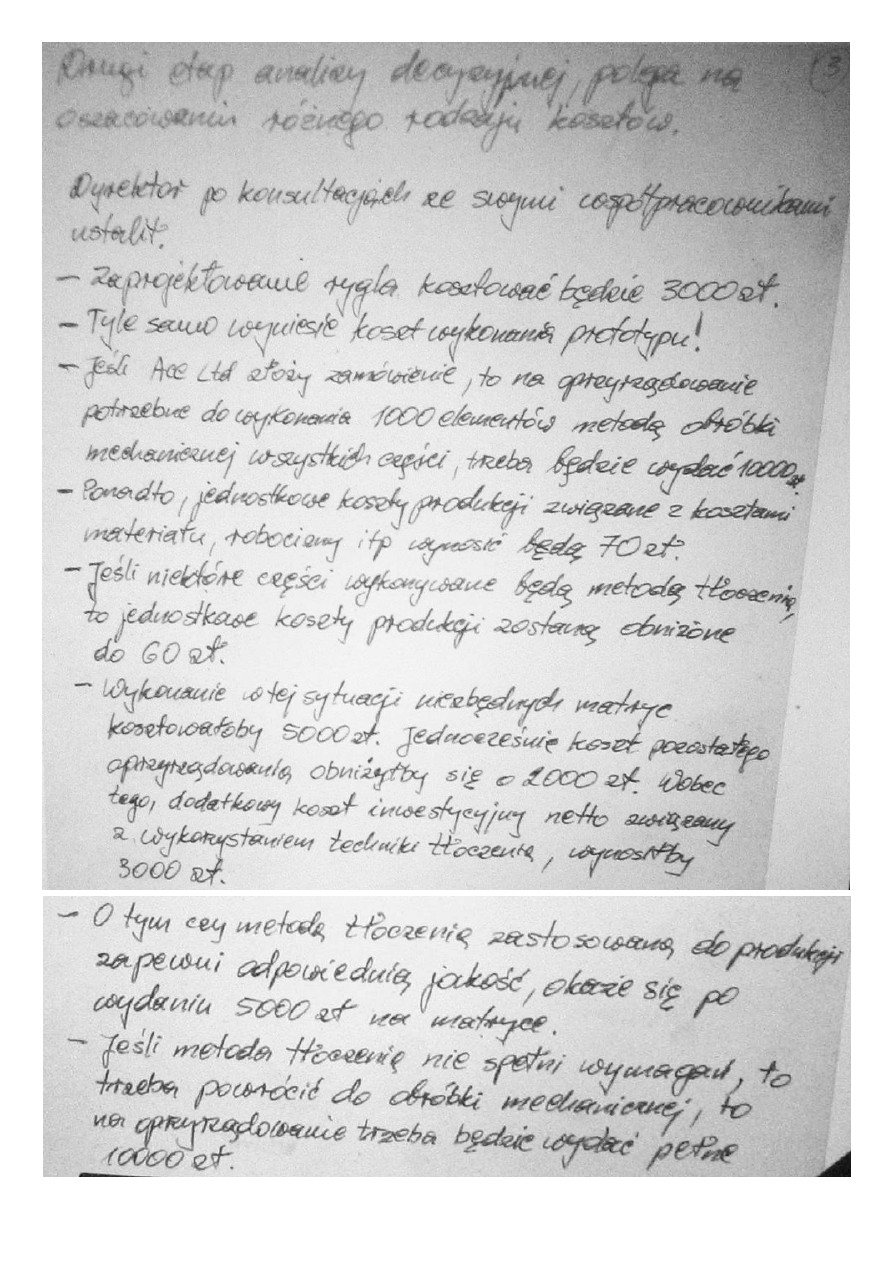 Drugi etap analizy decyzyjnej, polega na (3)
oszacowaniu różnego rodzaju kosztów.
Dyrektor po konsultacjach ze swymi współpracownikami
ustalił:
– Zaprojektowanie rygla kosztować będzie 3000 zł.
– Tyle samo wyniesie koszt wykonania prototypu!
– Jeśli Ace Ltd złoży zamówienie, to na oprzyrządowanie
potrzebne do wykonania 1000 elementów metodą obróbki
mechanicznej wszystkich części, trzeba będzie wydać 10000 zł.
– Ponadto, jednostkowe koszty produkcji związane z kosztami
materiału, robocizny itp wynosić będą 70 zł.
– Jeśli niektóre części wykonywane będą metodą tłoczenia,
to jednostkowe koszty produkcji zostaną obniżone
do 60 zł.
– Wykonanie w tej sytuacji niezbędnych matryc
kosztowałoby 5000 zł. Jednocześnie koszt pozostałego
oprzyrządowania obniżyłby się o 2000 zł. Wobec
tego, dodatkowy koszt inwestycyjny netto związany
z wykorzystaniem techniki tłoczenia, wynosiłby
3000 zł.
– O tym czy metoda tłoczenia zastosowana do produkcji
zapewni odpowiednią jakość, okaże się po
wydaniu 5000 zł na matryce.
– Jeśli metoda tłoczenia nie spełni wymagań, to
trzeba powrócić do obróbki mechanicznej, to
na oprzyrządowanie trzeba będzie wydać pełne
10000 zł.